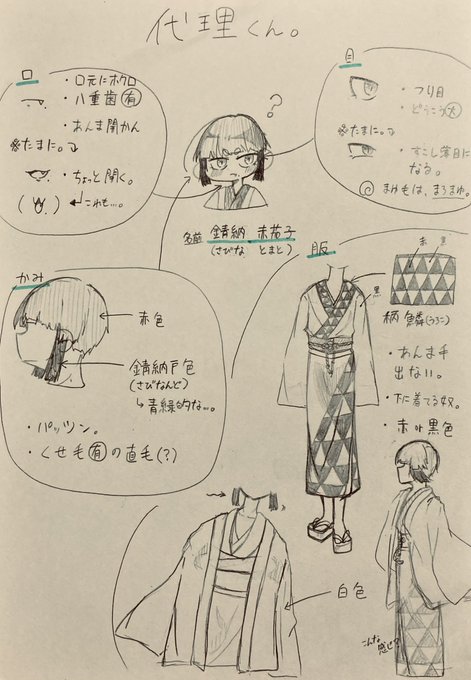 代理くん。
口
・口元にホクロ
・八重歯有
・あんま開かん
※たまに。
・ちょっと開く。
これも…。
目
・つり目
・どうこう大
※たまに。
・すこし薄目になる。
まゆもは、まろまゆ。
?
名前 錆納 赤茄子
(さびな とまと)
かみ
赤色
錆納戸色
(さびなんど)
↳青緑的な…。
・パッツン。
・くせ毛有の直毛(?)
服
赤 黒
黒
柄 鱗(うろこ)
・あんま手出ない。
・下に着てる奴。
・赤ト黒色
白色
こんな感じ?